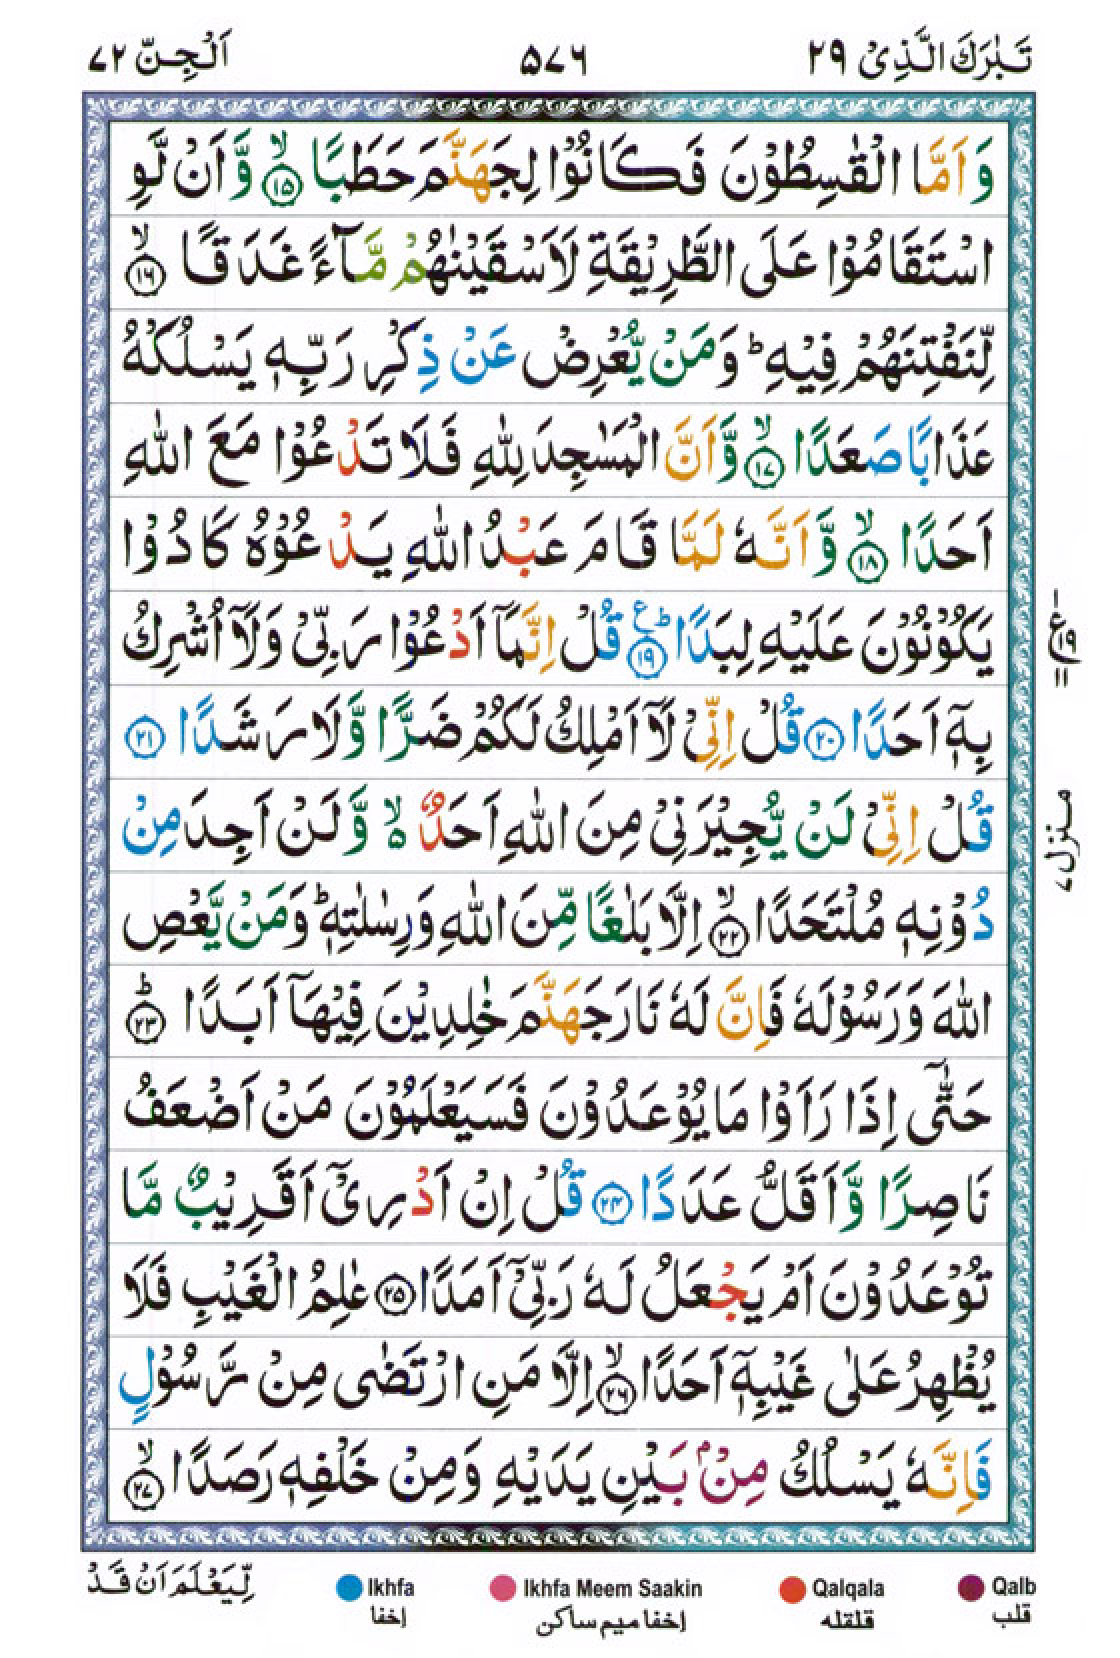 تَبٰرَكَ الَّذِىْ ٢٩
٥٧٦
اَلْجِنّ ٧٢
وَاَمَّا الْقٰسِطُوْنَ فَكَانُوْا لِجَهَنَّمَ حَطَبًا ۙ‏ ١٥ وَّاَنْ لَّوِ
اسْتَقَامُوْا عَلَى الطَّرِيْقَةِ لَاَسْقَيْنٰهُمْ مَّآءً غَدَقًا ۙ‏ ١٦
لِّنَفْتِنَهُمْ فِيْهِ ؕ وَمَنْ يُّعْرِضْ عَنْ ذِكْرِ رَبِّهٖ يَسْلُكْهُ
عَذَابًا صَعَدًا ۙ‏ ١٧ وَّاَنَّ الْمَسٰجِدَ لِلّٰهِ فَلَا تَدْعُوْا مَعَ اللّٰهِ
اَحَدًا ۙ‏ ١٨ وَّاَنَّهٗ لَمَّا قَامَ عَبْدُ اللّٰهِ يَدْعُوْهُ كَادُوْا
يَكُوْنُوْنَ عَلَيْهِ لِبَدًا ؕ ع ١٩ قُلْ اِنَّمَآ اَدْعُوْا رَبِّىْ وَلَآ اُشْرِكُ
بِهٖٓ اَحَدًا ٢٠ قُلْ اِنِّىْ لَآ اَمْلِكُ لَكُمْ ضَرًّا وَّلَا رَشَدًا ٢١
قُلْ اِنِّىْ لَنْ يُّجِيْرَنِىْ مِنَ اللّٰهِ اَحَدٌ ۙ‏ ٥ وَّلَنْ اَجِدَ مِنْ
دُوْنِهٖ مُلْتَحَدًا ۙ‏ ٢٢ اِلَّا بَلٰغًا مِّنَ اللّٰهِ وَرِسٰلٰتِهٖ ؕ وَمَنْ يَّعْصِ
اللّٰهَ وَرَسُوْلَهٗ فَاِنَّ لَهٗ نَارَ جَهَنَّمَ خٰلِدِيْنَ فِيْهَآ اَبَدًا ؕ ٢٣
حَتّٰٓى اِذَا رَاَوْا مَا يُوْعَدُوْنَ فَسَيَعْلَمُوْنَ مَنْ اَضْعَفُ
نَاصِرًا وَّاَقَلُّ عَدَدًا ٢٤ قُلْ اِنْ اَدْرِىْٓ اَقَرِيْبٌ مَّا
تُوْعَدُوْنَ اَمْ يَجْعَلُ لَهٗ رَبِّىْٓ اَمَدًا ٢٥ عٰلِمُ الْغَيْبِ فَلَا
يُظْهِرُ عَلٰى غَيْبِهٖٓ اَحَدًا ۙ‏ ٢٦ اِلَّا مَنِ ارْتَضٰى مِنْ رَّسُوْلٍ
فَاِنَّهٗ يَسْلُكُ مِنْۢ بَيْنِ يَدَيْهِ وَمِنْ خَلْفِهٖ رَصَدًا ۙ‏ ٢٧
ع ١٩
منزل ٧
لِّيَعْلَمَ اَنْ قَدْ
Ikhfa
إخفا
Ikhfa Meem Saakin
إخفا ميم ساكن
Qalqala
قلقله
Qalb
قلب